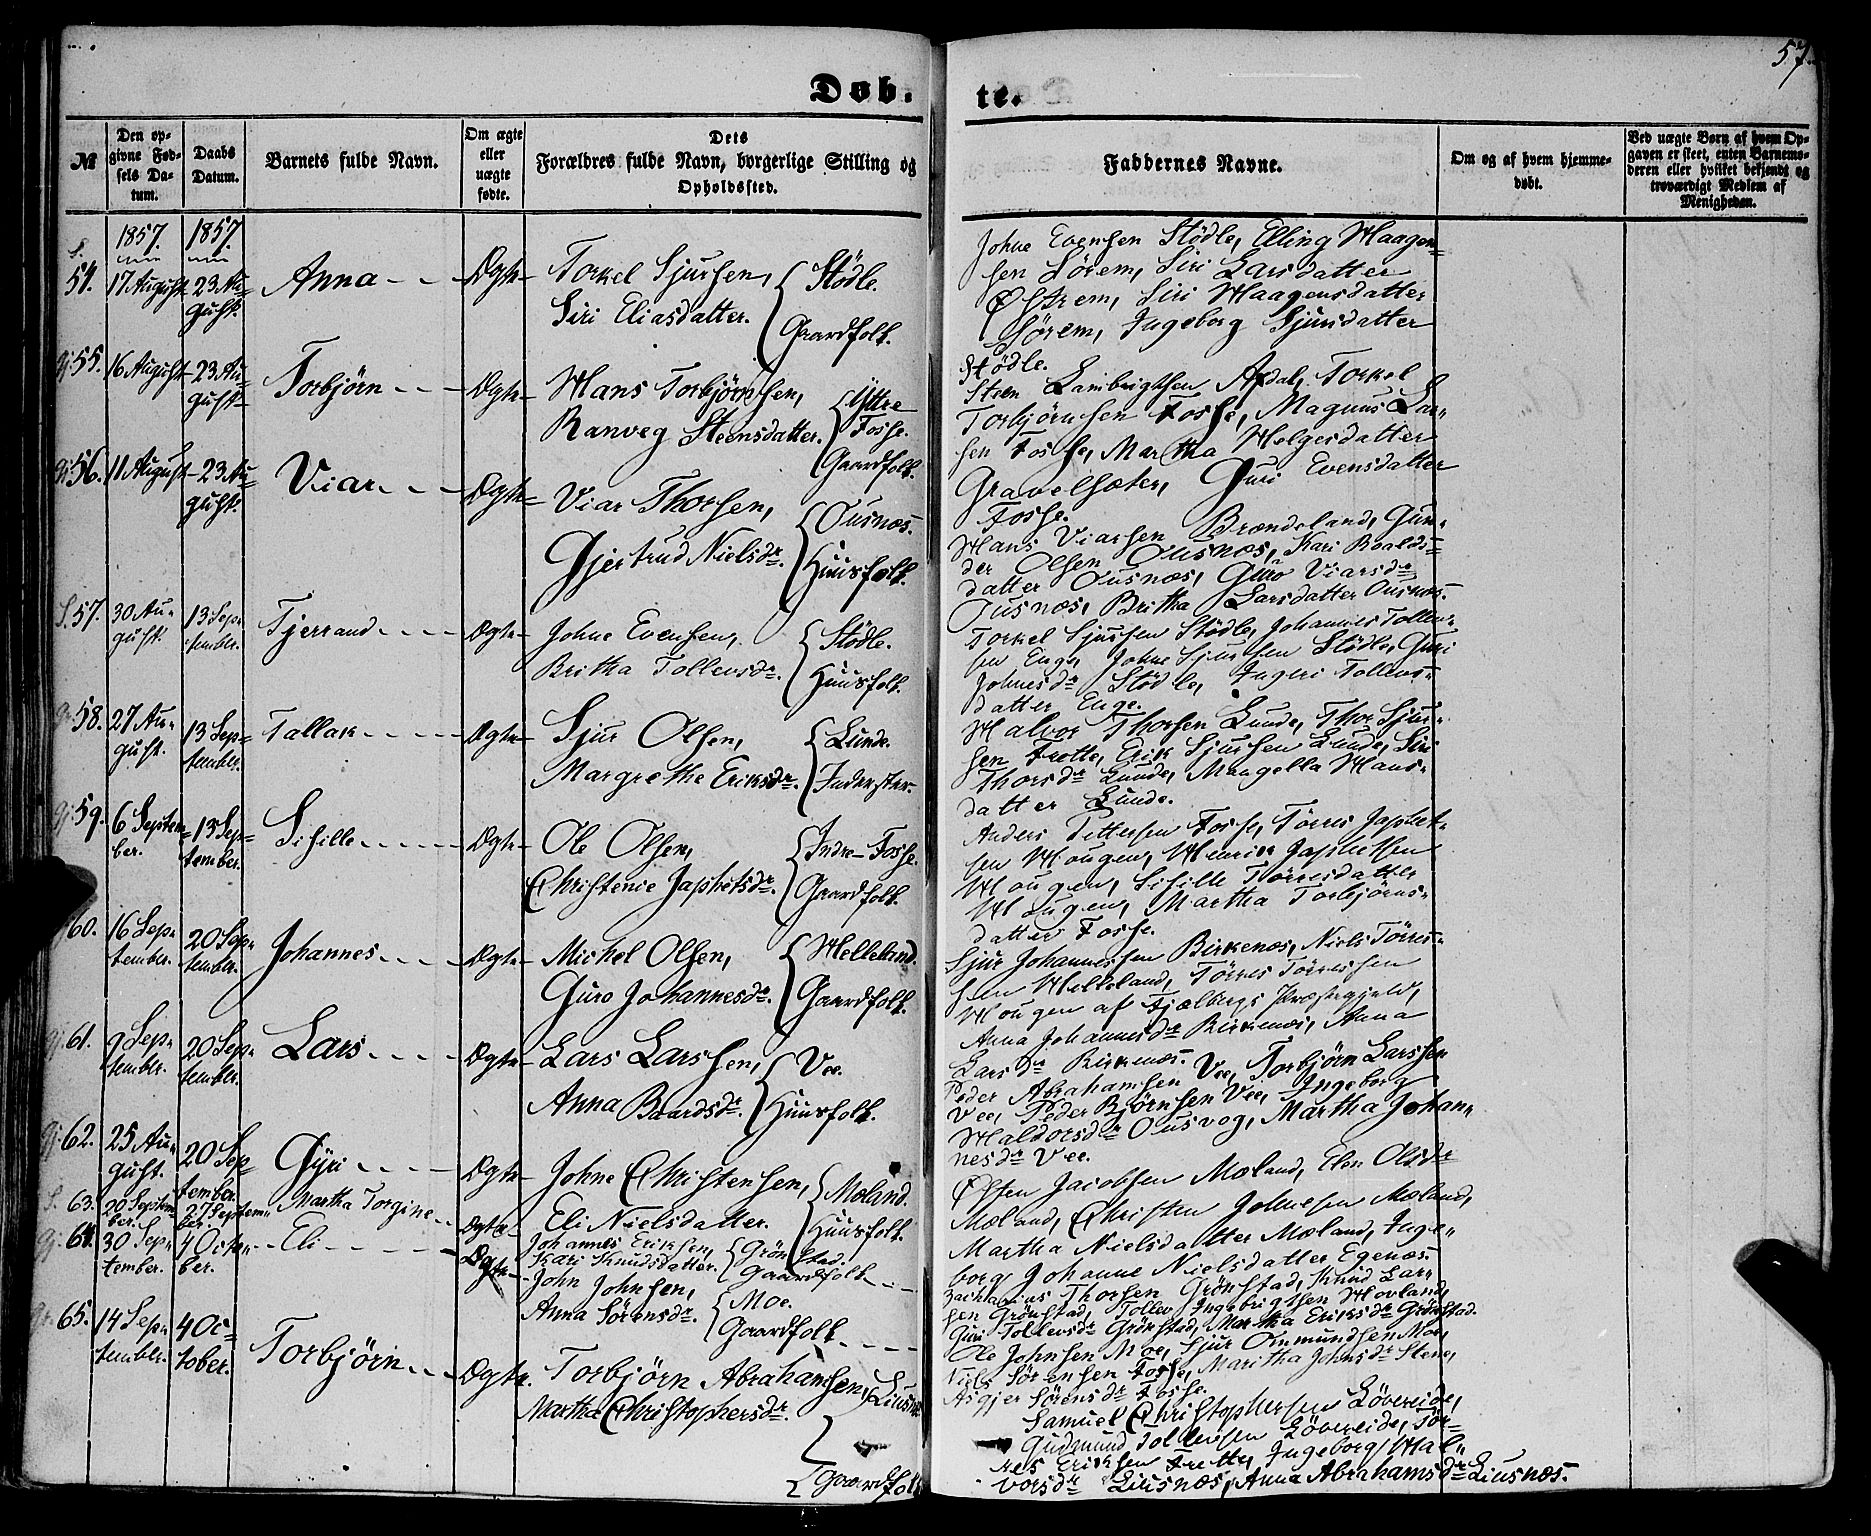 57.
Døb. te.
№
Den opgivne Fødsels Datum.
Daabs Datum.
Barnets fulde Navn.
Om ægte eller uægte fødte.
Dets Forældres fulde Navn, borgerlige Stilling og Opholdssted.
Faddernes Navne.
Om og af hvem hjemmedøbt.
Ved uægte Børn af hvem Opgaven er skeet, enten Barnemoderen eller hvilket bekjendt og troværdigt Medlem af Menigheden.
1857. 1857.
S. 54. 17 August 23 August. Anna Ægte Torkel Sjursen, Siri Eliasdatter. Stødle. Gaardfolk.
Johne Evensen Stødle, Elling Haagen-
sen Sørem, Siri Larsdatter
Østrem, Siri Haagensdatter
Sørem, Ingeborg Sjursdatter
Stødle.
Gj. 55. 16 August 23 August Torbjørn Ægte Hans Torbjørnsen, Ranveg Steensdatter. Yttre Fosse. Gaardfolk.
Steen Lambrigtsen Axdal, Torkel
Torbjørnsen Fosse, Magnus Lar-
sen Fosse, Martha Helgesdatter
Gravelsæter, Guri Evensdatter
Fosse.
Gj. 56. 11 August 23 August. Viar Ægte Viar Thorsen, Gjertrud Nielsdr. Ousnæs. Huusfolk.
Hans Viarsen Brændeland, Gun-
der Olsen Ousnæs, Kari Roalds-
datter Ousnæs, Guro Viarsdr
Ousnæs, Britha Larsdatter Ousnæs.
S. 57. 30 August. 13 September. Tjerrand Ægte Johne Evensen, Britha Tollevsdr. Stødle. Huusfolk.
Torkel Sjursen Stødle, Johannes Tollev-
sen Enge, Johne Sjursen Stødle, Guri
Johnesdr Stødle, Ingeri Tollevs-
datter Enge.
58. 27 August. 13 September. Tallak Ægte Sjur Olsen, Margrethe Eriksdr. Lunde. Inderster.
Halvor Thorsen Lunde, Thor Sjur-
sen Frette, Erik Sjursen Lunde, Siri
Thorsdr Lunde, Mangella Hans-
datter Lunde.
Gj. 59. 6 September. 13 September. Sisille Ægte Ole Olsen, Christenie Japhetsdr. Indre Fosse. Gaardfolk.
Anders Pettersen Fosse, Tørres Japhet-
sen Hougen, Henrik Japhetsen
Hougen, Sisille Tørresdatter
Hougen, Martha Torbjørns-
datter Fosse.
60. 16 September. 20 September. Johannes Ægte Michel Olsen, Guro Johannesdr. Helleland. Gaardfolk.
Sjur Johannessen Birkenæs, Niels Tørres-
sen Helleland, Tørres Tørressen
Hougen af Fjælbergs Præstegjeld,
Anna Johannesdr Birkenæs, Anna
Larsdr Birkenæs.
Gj. 61. 9 September. 20 September. Lars Ægte Lars Larssen, Anna Baardsdr. Vee. Huusfolk.
Peder Abrahamsen Vee, Torbjørn Larssen
Vee, Peder Bjørnsen Vee, Ingeborg
Haldorsdr Ousvog, Martha Johan-
nesdr Vee.
Gj. 62. 25 August. 20 September. Gyri Ægte Johne Christensen, Eli Nielsdatter. Mæland. Huusfolk.
Østen Jacobsen Mæland, Elen Olsdr
Mæland, Christen Johnesen Mæland,
Martha Nielsdatter Mæland, Inge-
borg Johanne Nielsdatter Egenæs.
S. 63. 20 September. 27 September. Martha Torgine Ægte Johannes Eriksen, Kari Knudsdatter. Grønstad. Gaardfolk.
Zacharias Thorsen Grønstad, Knud Lar-
sen Grønstad, Tollev Ingebrigtsen Hovland,
Guri Tollevsdr Grønstad, Martha Eriksdr Grønstad.
Gj. 64. 30 September. 4 October. Eli Ægte John Johnsen, Anna Sørensdr. Moe. Gaardfolk.
Ole Johnsen Moe, Sjur Omundsen Moe,
Niels Sørensen Fosse, Maritha Johnsdr Stene,
Asgjer Sørensdr Fosse.
Gr. 65. 14 September. 4 October. Torbjørn Ægte. Torbjørn Abrahamsen, Martha Christophersdr. Liusnæs Gaardfolk
Samuel Christophersen Løvereide,
Gudmund Tollevsen Løvereide, Tør-
res Eriksen Frette, Ingeborg Hal-
vorsdr Liusnæs, Anna Abrahamsdr Liusnæs.